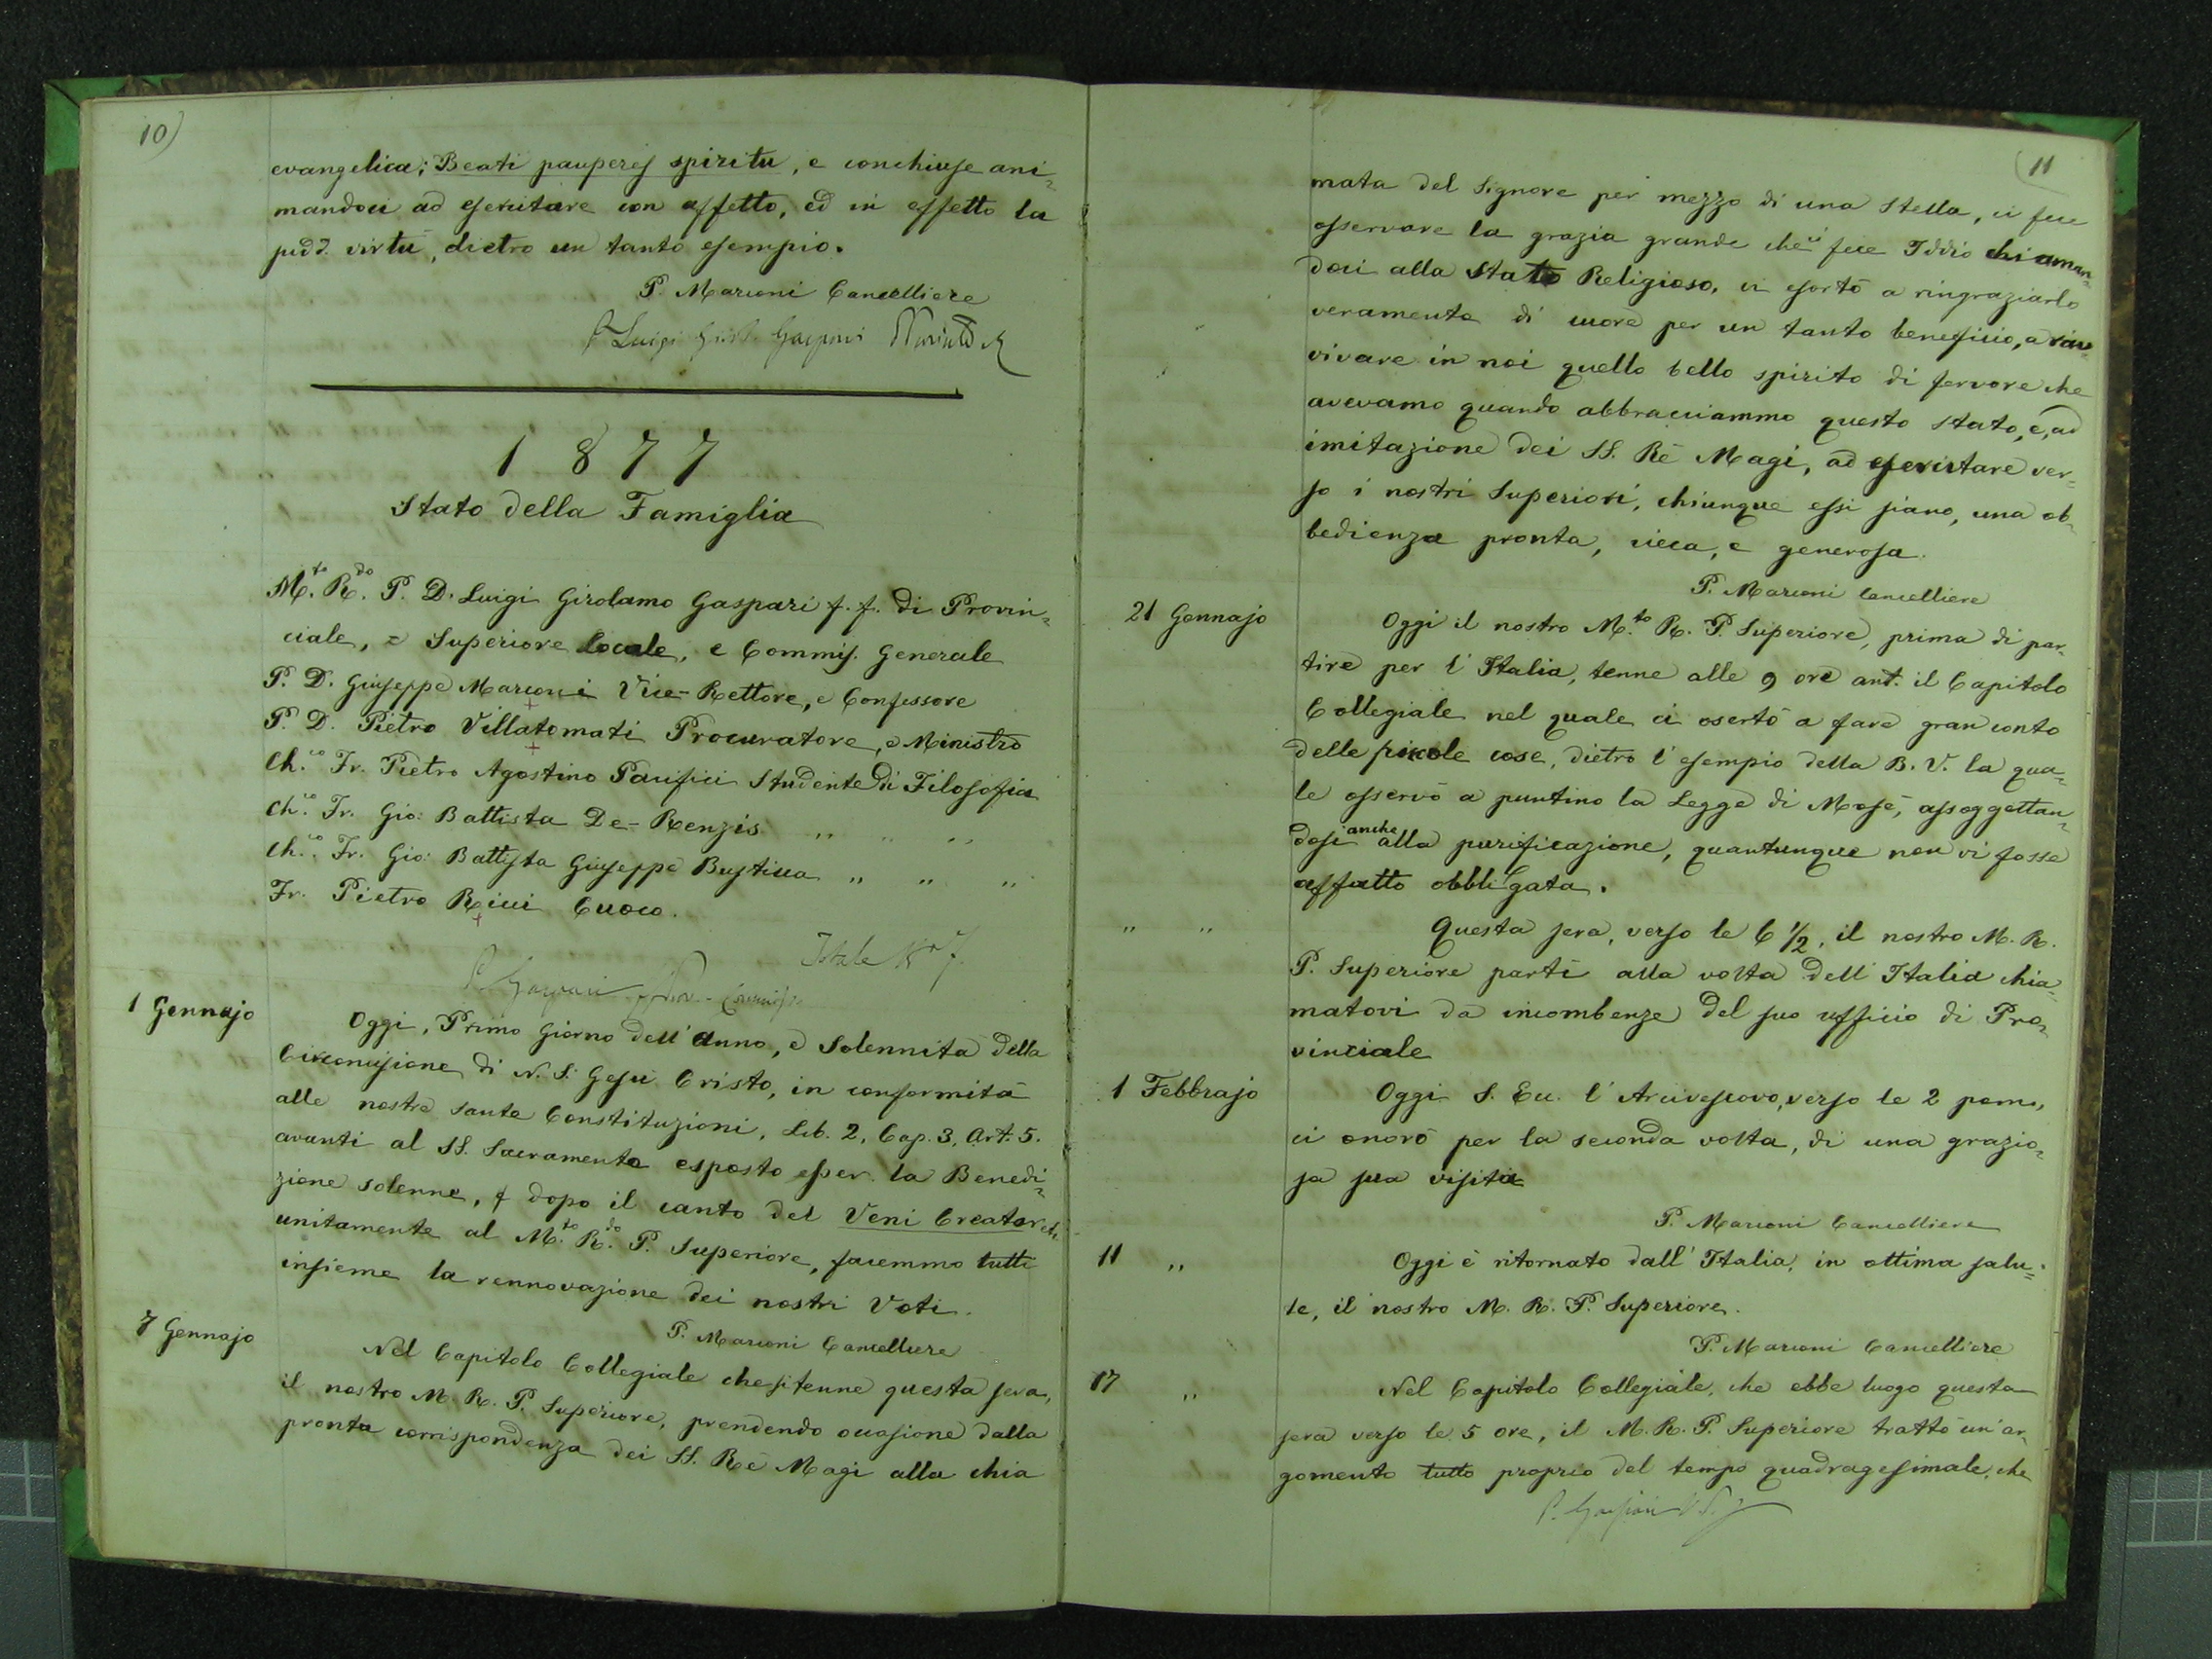 10)
evangelica; Beati pauperes spiritu, e conchiuse ani=
mandoci ad esercitare con affetto, ed in effetto la
pdd. virtù, dietro un tanto esempio.
P. Marconi Cancelliere
P. Luigi Gaspari
1877
Stato della Famiglia
M.to R.do P. D. Luigi Girolamo Gaspari f. f. di Provin=
ciale, e Superiore locale, e Commis. Generale
P. D. Giuseppe Marconi Vice-Rettore, e Confessore
P. D. Pietro Villatomati Procuratore, e Ministro
Ch.co Fr. Pietro Agostino Pacifici Studente di Filosofia
Ch.co Fr. Gio: Battista De-Renzis " " "
Ch.co Fr. Gio: Battista Giuseppe Bustica " " "
Fr. Pietro Ricci Cuoco.
Totale N° 7.
P. Gaspari
1 Gennajo
Oggi, Primo Giorno dell'anno, e Solennità della
Circoncisione di N. S. Gesù Cristo, in conformità
alle nostre sante Constituzioni, Lib. 2, Cap. 3, Art. 5.
avanti al SS. Sacramento esposto per la Benedi=
zione solenne, e dopo il canto del Veni Creator etc.
unitamente al M.to R.do P. Superiore, facemmo tutti
insieme la rennovazione dei nostri Voti.
P. Marconi Cancelliere
7 Gennajo
Nel Capitolo Collegiale che si tenne questa sera,
il nostro M. R. P. Superiore, prendendo occasione dalla
pronta corrispondenza dei SS. Re Magi alla chia
11
mata del Signore per mezzo di una stella, ci fece
osservare la grazia grande che ci fece Iddio chiaman=
doci alla Stato Religioso, ci esortò a ringraziarlo
veramente di cuore per un tanto beneficio, a rav=
vivare in noi quello bello spirito di fervore che
avevamo quando abbracciammo questo stato, e, ad
imitazione dei SS. Re Magi, ad esercitare ver=
so i nostri Superiori, chiunque essi siano, una ob=
bedienza pronta, cieca, e generosa.
P. Marconi Cancelliere
21 Gennajo
Oggi il nostro M.to R. P. Superiore, prima di par=
tire per l'Italia, tenne alle 9 ore ant. il Capitolo
Collegiale nel quale ci esortò a fare gran conto
delle piccole cose, dietro l'esempio della B. V. la qua=
le osservò a puntino la Legge di Mosè, assoggettan=
dosi anche alla purificazione, quantunque non vi fosse
affatto obbligata.
" "
Questa sera, verso le 6 1/2, il nostro M. R.
P. Superiore partì alla volta dell'Italia chia=
matovi da incombenze del suo ufficio di Pro=
vinciale
1 Febbrajo
Oggi S. Ecc. l'Arcivescovo, verso le 2 pom.,
ci onorò per la seconda volta, di una grazio=
sa sua visita
P. Marconi Cancelliere
11 "
Oggi è ritornato dall'Italia, in ottima salu=
te, il nostro M. R. P. Superiore.
P. Marconi Cancelliere
17 "
Nel Capitolo Collegiale, che ebbe luogo questa
sera verso le 5 ore, il M. R. P. Superiore trattò un'ar=
gomento tutto proprio del tempo quadragesimale, che
P. Gaspari